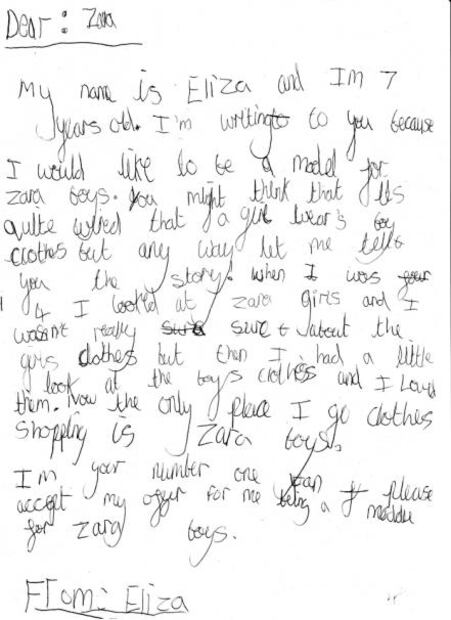 Dear: Zara
My name is Eliza and Im 7
years old. I'm writing to you because
I would like to be a model for
zara boys. You might think that its
quite wired that a girl wear's boy
clothes but any way let me tell
you the story! when I was four
4 I looked at zara girls and I
wasn't really sure sure about the
girls clothes but then I had a little
look at the boys clothes and I Loved
them. Now the only place I go clothes
shopping is Zara boys.
Im your number one fan please
accept my offer for me being a moddle
for zara boys.
From: Eliza